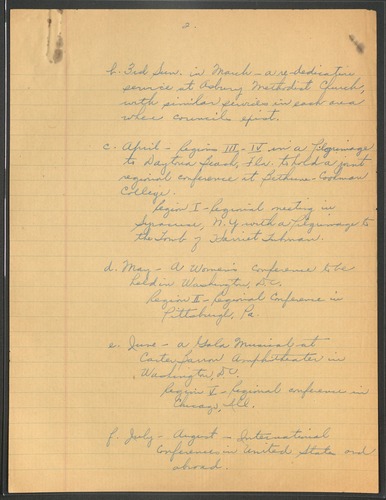 2.
b. 3rd Sun. in March - a re-dedication
service at Asbury Methodist Church,
with similar services in each area
where councils exist.
c. April - Regions III - IV in a Pilgrimage
to Daytona Beach, Fla. to hold a joint
regional conference at Bethune-Cookman
College.
Region I - Regional meeting in
Syracuse, N.Y. with a Pilgrimage to
the Tomb of Harriet Tubman.
d. May - A Women's Conference to be
held in Washington, D.C.
Region II - Regional Conference in
Pittsburgh, Pa.
e. June - a Gala Musical at
Carter Barron Amphitheater in
Washington, D.C.
Region V - Regional conference in
Chicago, Ill.
f. July - August - International
Conferences in United States and
abroad.